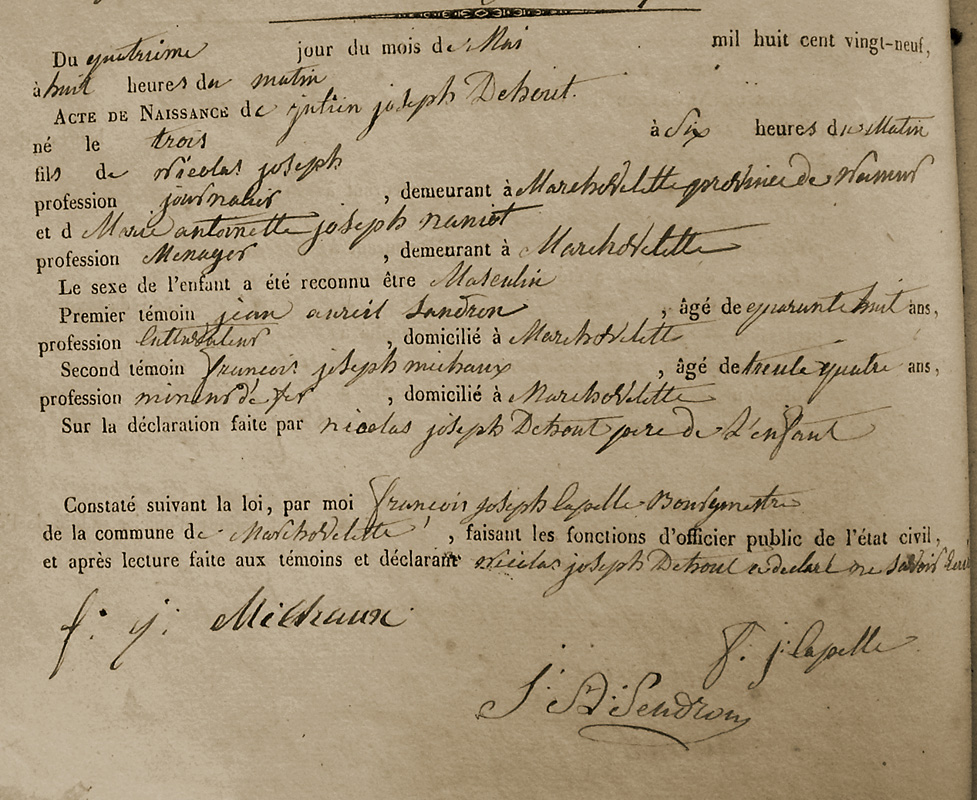 Du quatrieme jour du mois de Mai mil huit cent vingt-neuf,
à huit heures du matin
ACTE DE NAISSANCE de julien joseph Detrout.
né le trois à Six heures du Matin
fils de Nicolas joseph
profession journalier, demeurant à Marchovelette province de Namur
et d Marie antoinette joseph naniot
profession Menager, demeurant à Marchovelette
Le sexe de l'enfant a été reconnu être Masculin
Premier témoin jean Sandron, âgé de quarante huit ans,
profession Cultivateur, domicilié à Marchovelette
Second témoin francois joseph michaux, âgé de trente quatre ans,
profession mineur de fer, domicilié à Marchovelette
Sur la déclaration faite par nicolas joseph Detrout pere de L'enfant
Constaté suivant la loi, par moi francois joseph Capelle Bourgmestre
de la commune de Marchovelette, faisant les fonctions d'officier public de l'état civil,
et après lecture faite aux témoins et déclarant nicolas joseph Detrout a declaré ne savoir
f. j. Michaux
F. j. Capelle
J. Sendron